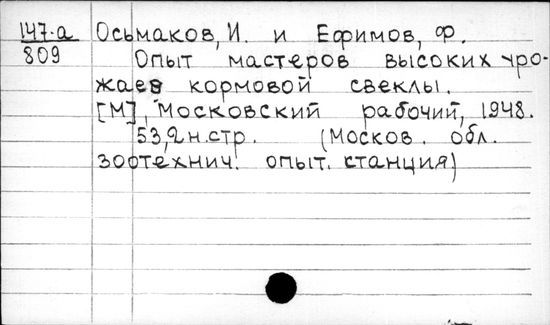 147-а Осьмаков, И. и Ефимов, Ф.
809 Опыт мастеров высоких уро-
жаев кормовой свеклы.
[М], Московский рабочий, 1948.
53,2 н.стр. (Москов. обл.
зоотехнич. опыт. станция)